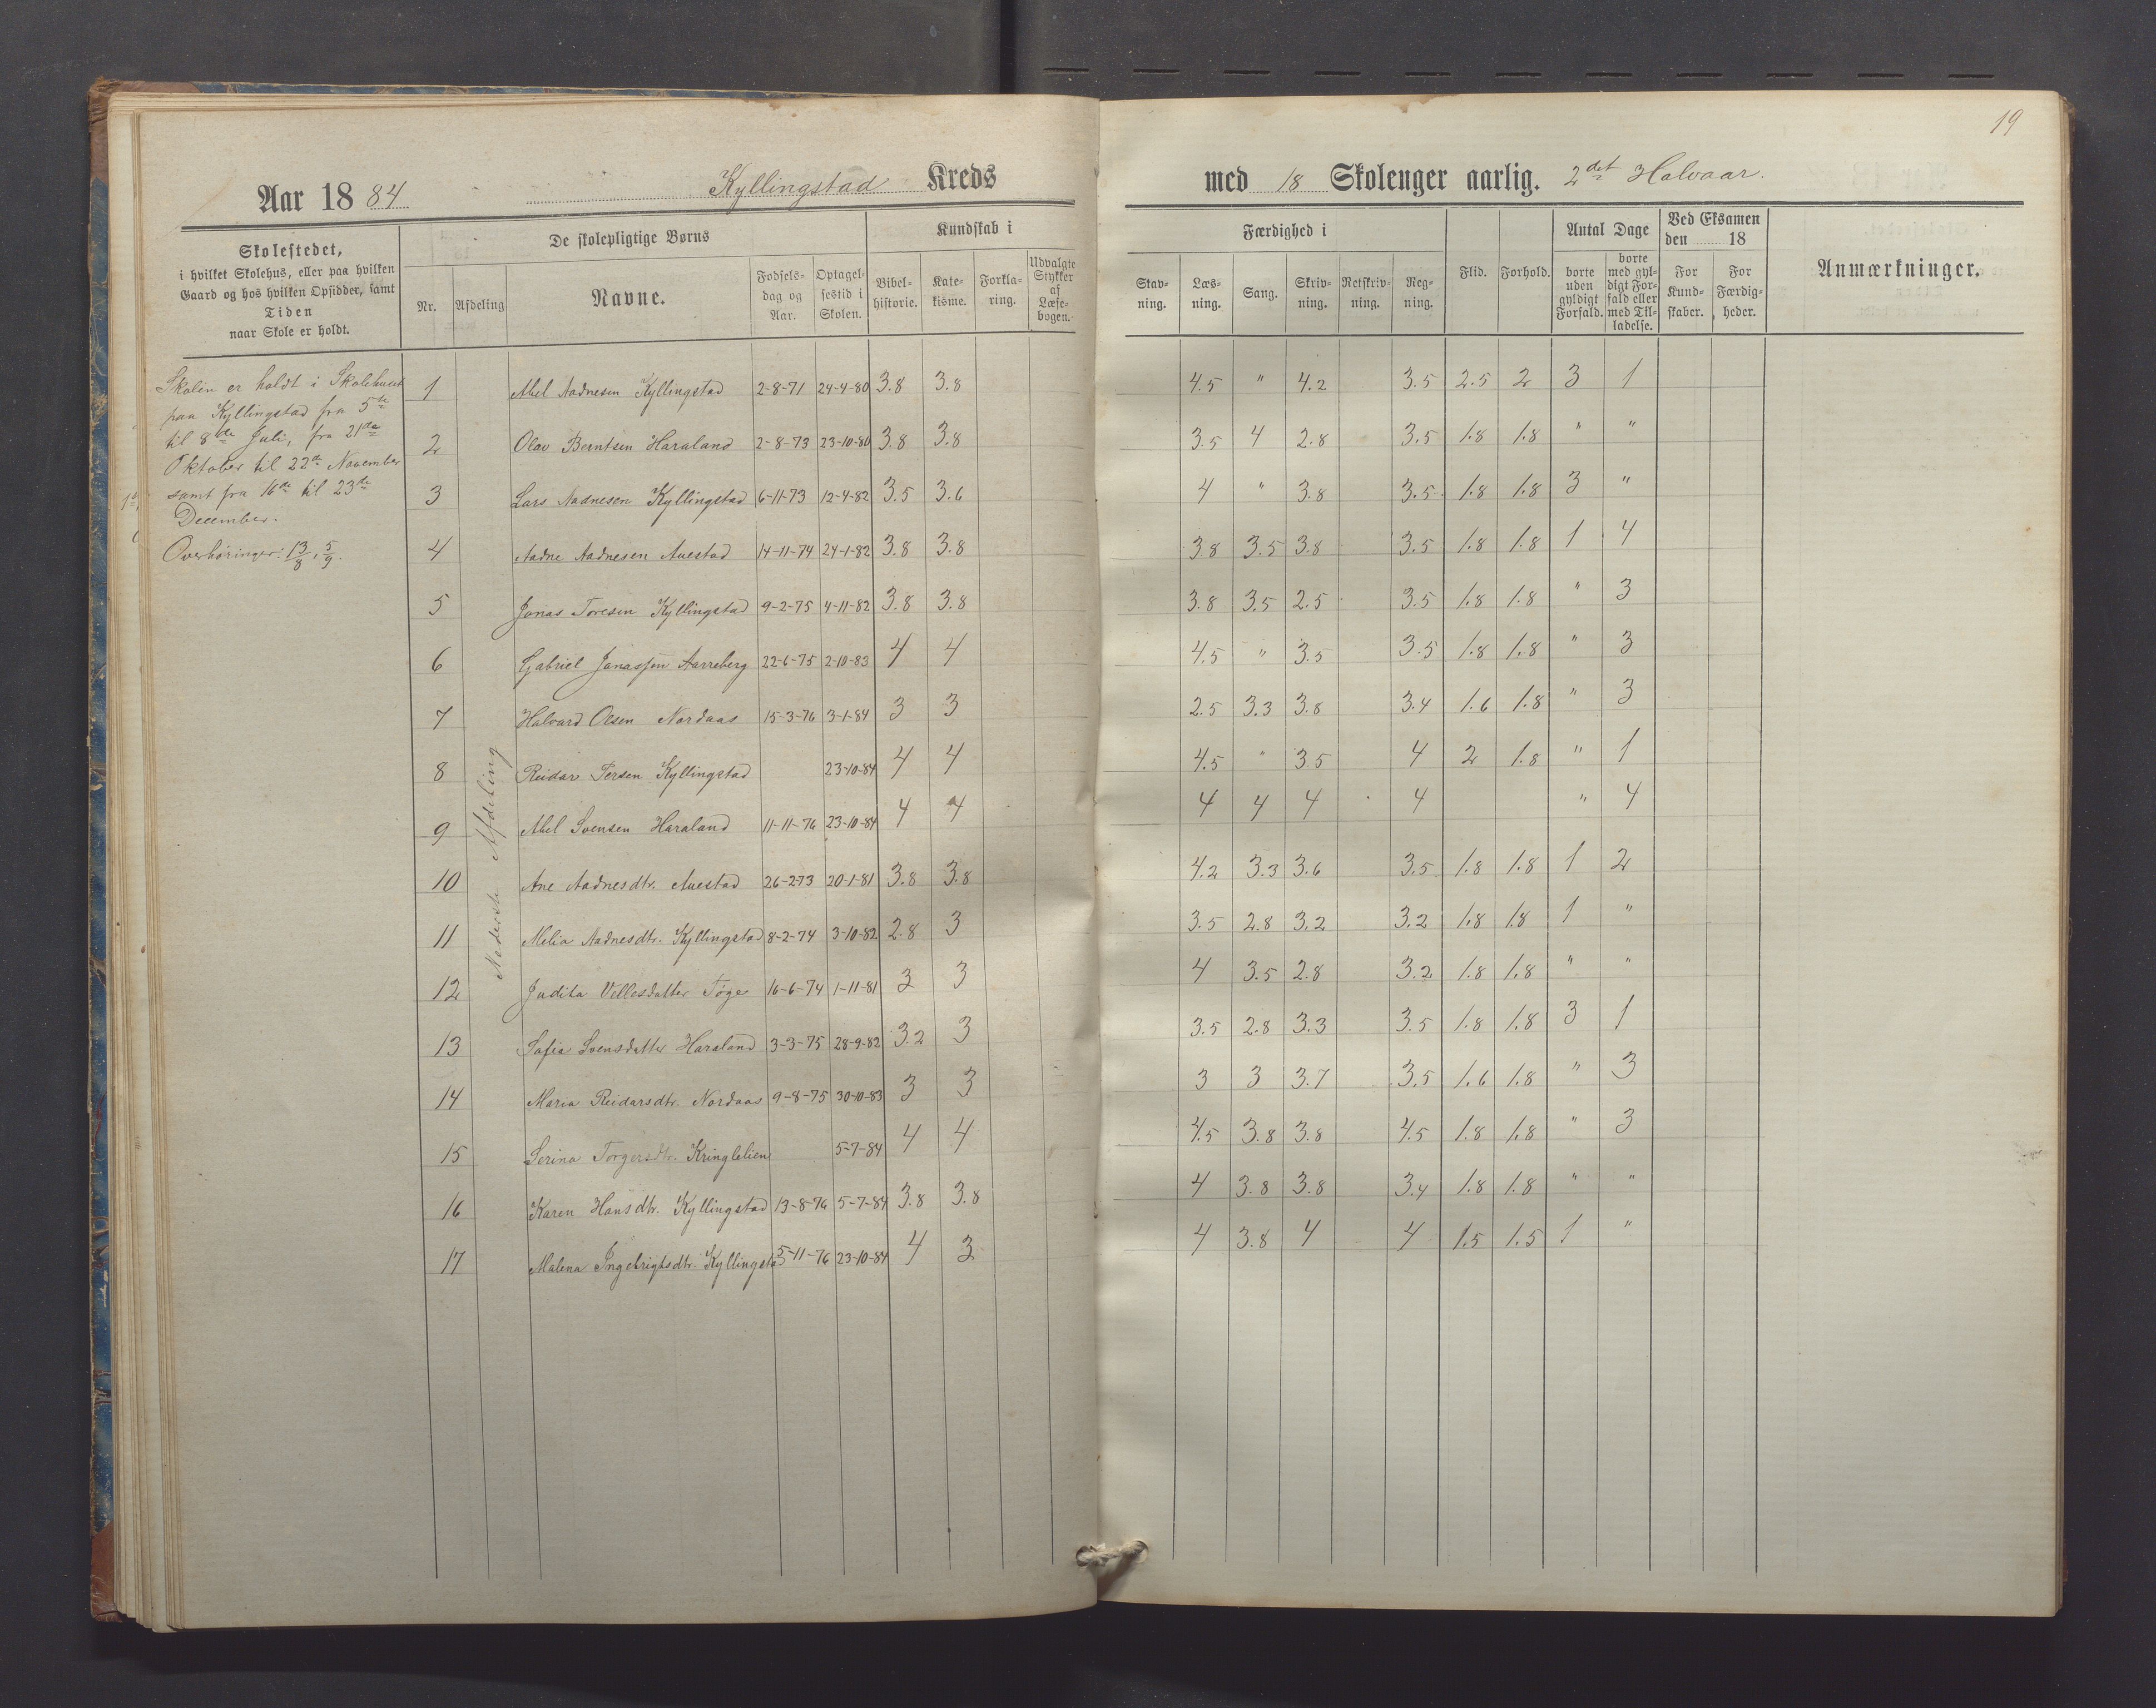 19
Aar 1884 Kyllingstad Kreds med 18 Skoleuger aarlig. 2det Halvaar.
Skolestedet,
i hvilket Skolehus, eller paa hvilken
Gaard og hos hvilken Opsidder, samt
Tiden
naar Skole er holdt.
De skolepligtige Børns
Nr. Afdeling Navne. Fødsels-dag og Aar. Optagel-sestid i Skolen.
Kundskab i
Bibel-historie. Kate-kisme. Forkla-ring. Udvalgte Stykker af Læse-bogen.
Færdighed i
Stav-ning. Læs-ning. Sang. Skriv-ning. Retskriv-ning. Reg-ning.
Flid. Forhold.
Antal Dage
borte uden gyldigt Forfald. borte med gyl-digt For-fald eller med Til-ladelse.
Ved Eksamen
den 18
For Kund-skaber. For Færdig-heder.
Anmærkninger.
Skolen er holdt i Skolehuset
paa Kyllingstad fra 5te
til 8de Juli, fra 21de
Oktober til 22de November
samt fra 16de til 23de
December.
Overhøringer: 13/8, 5/9.
Nederste Afdeling
1 Abel Aadnesen Kyllingstad 2-8-71 24-4-80 3.8 3.8 4.5 " 4.2 3.5 2.5 2 3 1
2 Olav Berntsen Haraland 2-8-73 23-10-80 3.8 3.8 3.5 4 2.8 3.5 1.8 1.8 " "
3 Lars Aadnesen Kyllingstad 6-11-73 12-4-82 3.5 3.6 4 " 3.8 3.5 1.8 1.8 3 "
4 Aadne Aadnesen Auestad 14-11-74 24-1-82 3.8 3.8 3.8 3.5 3.8 3.5 1.8 1.8 1 4
5 Jonas Toresen Kyllingstad 9-2-75 4-11-82 3.8 3.8 3.8 3.5 2.5 3.5 1.8 1.8 " 3
6 Gabriel Jonassen Aarreberg 22-6-75 2-10-83 4 4 4.5 " 3.5 3.5 1.8 1.8 " 3
7 Halvard Olsen Nordaas 15-3-76 3-1-84 3 3 2.5 3.3 3.8 3.4 1.6 1.8 " 3
8 Reidar Persen Kyllingstad 23-10-84 4 4 4.5 " 3.5 4 2 1.8 " 1
9 Abel Svensen Haraland 11-11-76 23-10-84 4 4 4 4 4 4 " 4
10 Ane Aadnesdtr. Auestad 26-2-73 20-1-81 3.8 3.8 4.2 3.3 3.6 3.5 1.8 1.8 1 2
11 Melia Aadnesdtr. Kyllingstad 8-2-74 3-10-82 2.8 3 3.5 2.8 3.2 3.2 1.8 1.8 1 "
12 Judita Vellesdatter 16-6-74 1-11-81 3 3 4 3.5 2.8 3.2 1.8 1.8 " "
13 Sofia Svensdatter Haraland 3-3-75 28-9-82 3.2 3 3.5 2.8 3.3 3.5 1.8 1.8 3 1
14 Maria Reidarsdtr. Nordaas 9-8-75 30-10-83 3 3 3 3 3.7 3.5 1.6 1.8 " 3
15 Serina Torgersdtr. Kringlelien 5-7-84 4 4 4.5 3.8 3.8 4.5 1.8 1.8 " 3
16 Karen Hansdtr. Kyllingstad 13-8-76 5-7-84 3.8 3.8 4 3.8 3.8 3.4 1.8 1.8 " "
17 Malena Ingebrigtsdtr. Kyllingstad 5-11-76 23-10-84 4 3 4 3.8 4 4 1.5 1.5 1 "